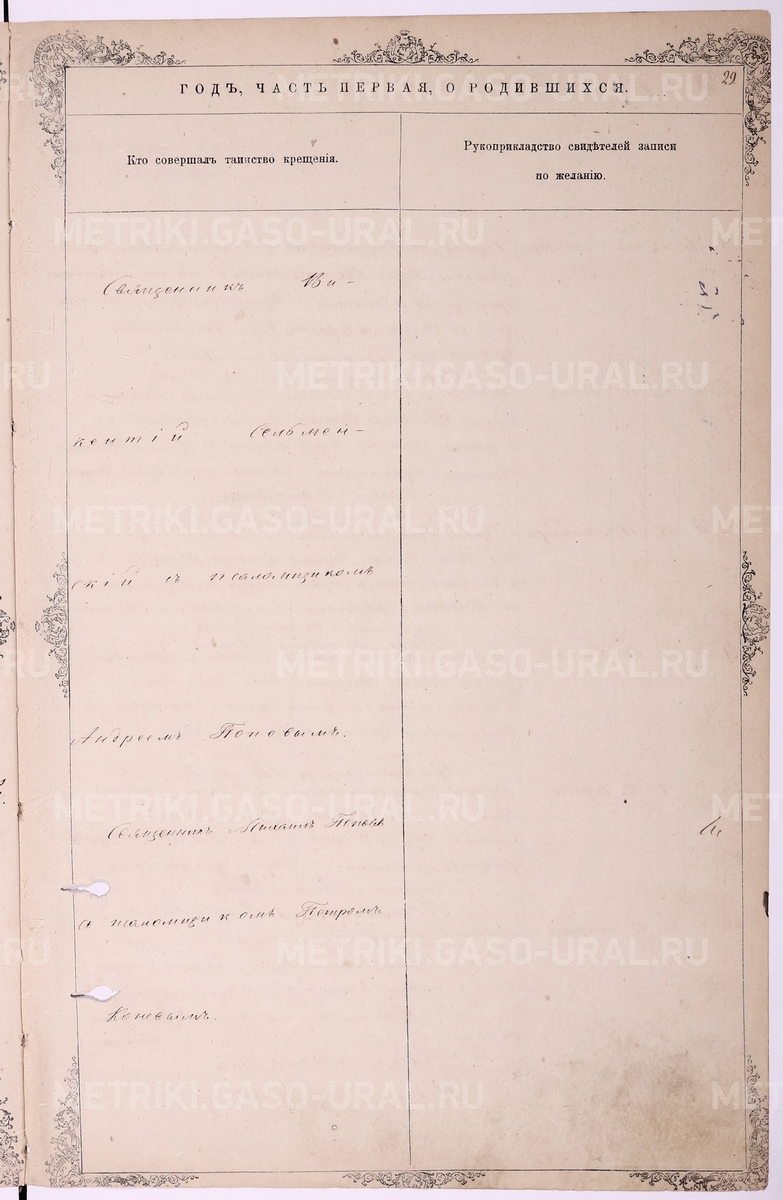 29
ГОДЪ, ЧАСТЬ ПЕРВАЯ, О РОДИВШИХСЯ.
Кто совершалъ таинство крещенія.
Рукоприкладство свидѣтелей записи
по желанію.
Священникъ Ви-
кентій Сельмен-
скій съ псаломщикомъ
Андреемъ Поповымъ.
Священникъ Михаилъ Поповъ
съ псаломщикомъ Петромъ
Коневымъ.
METRIKI.GASO-URAL.RU